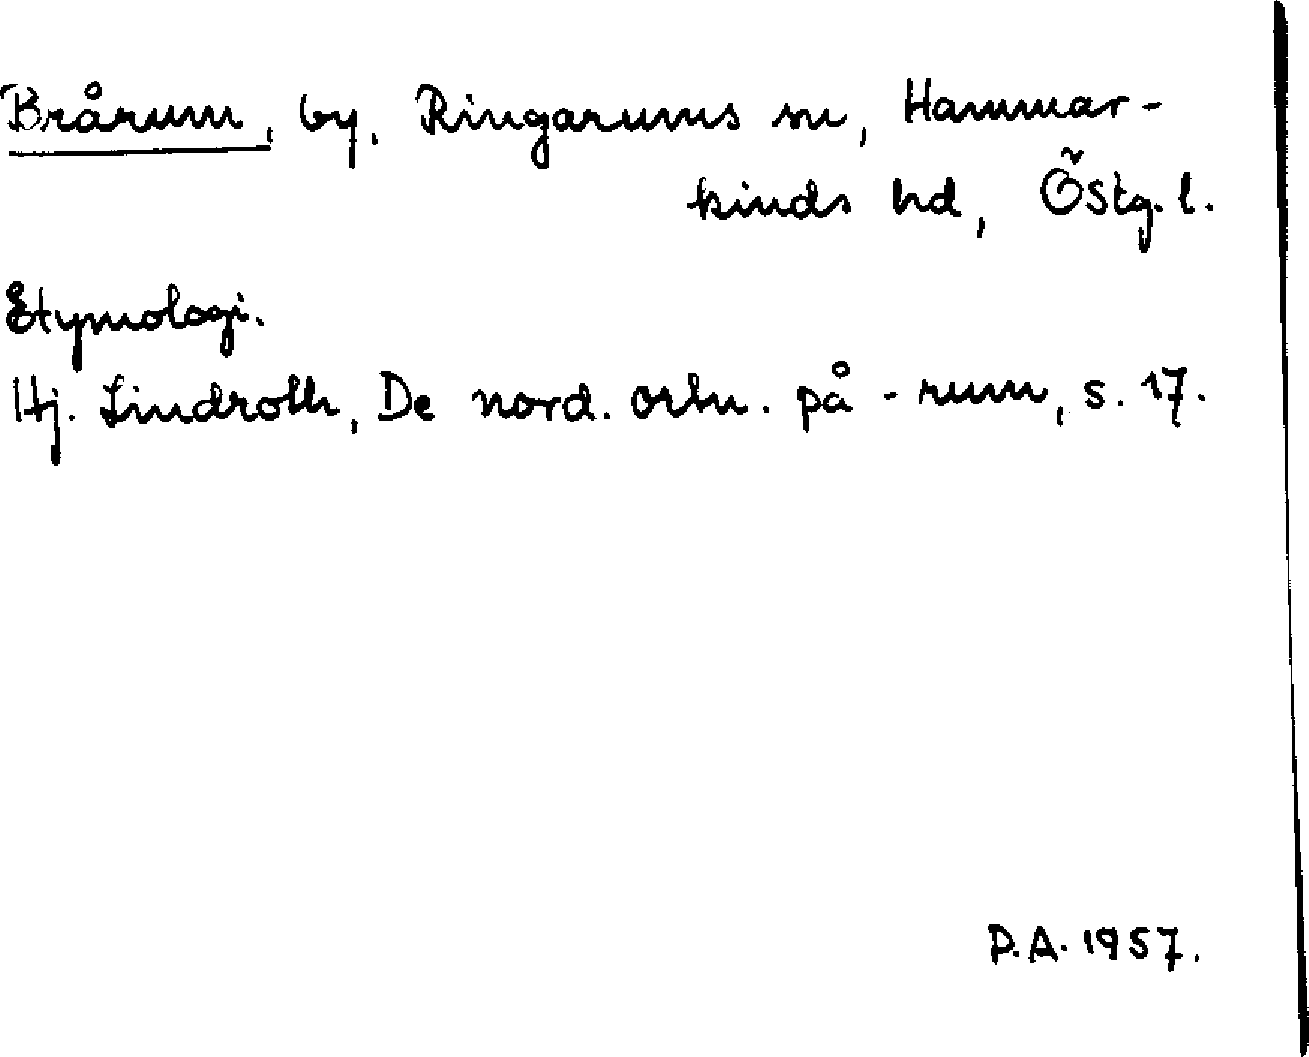 Brårum, by, Ringarums sn, Hammar-
kinds hd, Östg. l.
Etymologi.
Hj. Lindroth, De nord. ortn. på -rum, s. 17.
P.A. 1957.